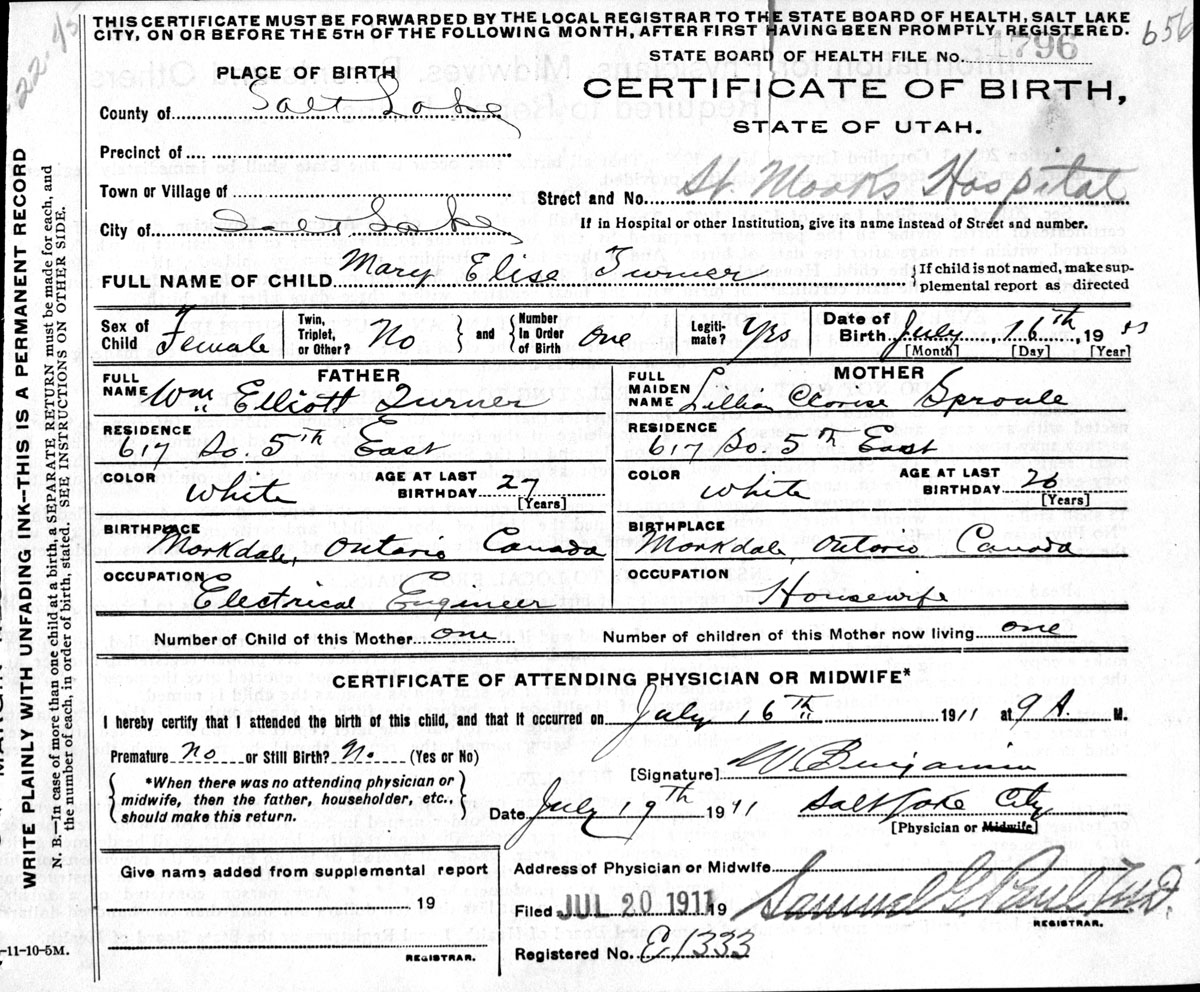 THIS CERTIFICATE MUST BE FORWARDED BY THE LOCAL REGISTRAR TO THE STATE BOARD OF HEALTH, SALT LAKE
CITY, ON OR BEFORE THE 5TH OF THE FOLLOWING MONTH, AFTER FIRST HAVING BEEN PROMPTLY REGISTERED.
656
22-45
STATE BOARD OF HEALTH FILE NO. 1796
PLACE OF BIRTH
CERTIFICATE OF BIRTH,
STATE OF UTAH.
County of Salt Lake
Precinct of
Town or Village of
Street and No. St. Marks Hospital
City of Salt Lake
If in Hospital or other Institution, give its name instead of Street and number.
FULL NAME OF CHILD Mary Elise Turner
If child is not named, make sup-
plemental report as directed
Sex of Child Female
Twin, Triplet, or Other? No
and
Number In Order of Birth One
Legiti-mate? Yes
Date of Birth July, 16th, 19
[Month] [Day] [Year]
FATHER
FULL NAME Wm Elliott Turner
RESIDENCE 617 So. 5th East
COLOR White
AGE AT LAST BIRTHDAY 27
[Years]
BIRTHPLACE Markdale, Ontario Canada
OCCUPATION Electrical Engineer
MOTHER
FULL MAIDEN NAME Lillian Sproule
RESIDENCE 617 So. 5th East
COLOR White
AGE AT LAST BIRTHDAY 26
[Years]
BIRTHPLACE Markdale, Ontario Canada
OCCUPATION Housewife
Number of Child of this Mother one
Number of children of this Mother now living one
CERTIFICATE OF ATTENDING PHYSICIAN OR MIDWIFE*
I hereby certify that I attended the birth of this child, and that it occurred on July 16th 1911 at 9 A. M.
Premature? No or Still Birth? No (Yes or No)
*When there was no attending physician or
midwife, then the father, householder, etc.,
should make this return.
[Signature] W Benjamin
Date July 19th 1911 Salt Lake City
[Physician or Midwife]
Give name added from supplemental report
19
REGISTRAR.
Address of Physician or Midwife
Filed JUL 20 1911 19 Samuel G. Paul M.D.
REGISTRAR.
Registered No. E1333
WRITE PLAINLY WITH UNFADING INK--THIS IS A PERMANENT RECORD
N. B.—In case of more than one child at a birth, a SEPARATE RETURN must be made for each, and
the number of each, in order of birth, stated. SEE INSTRUCTIONS ON OTHER SIDE.
-11-10-5M.